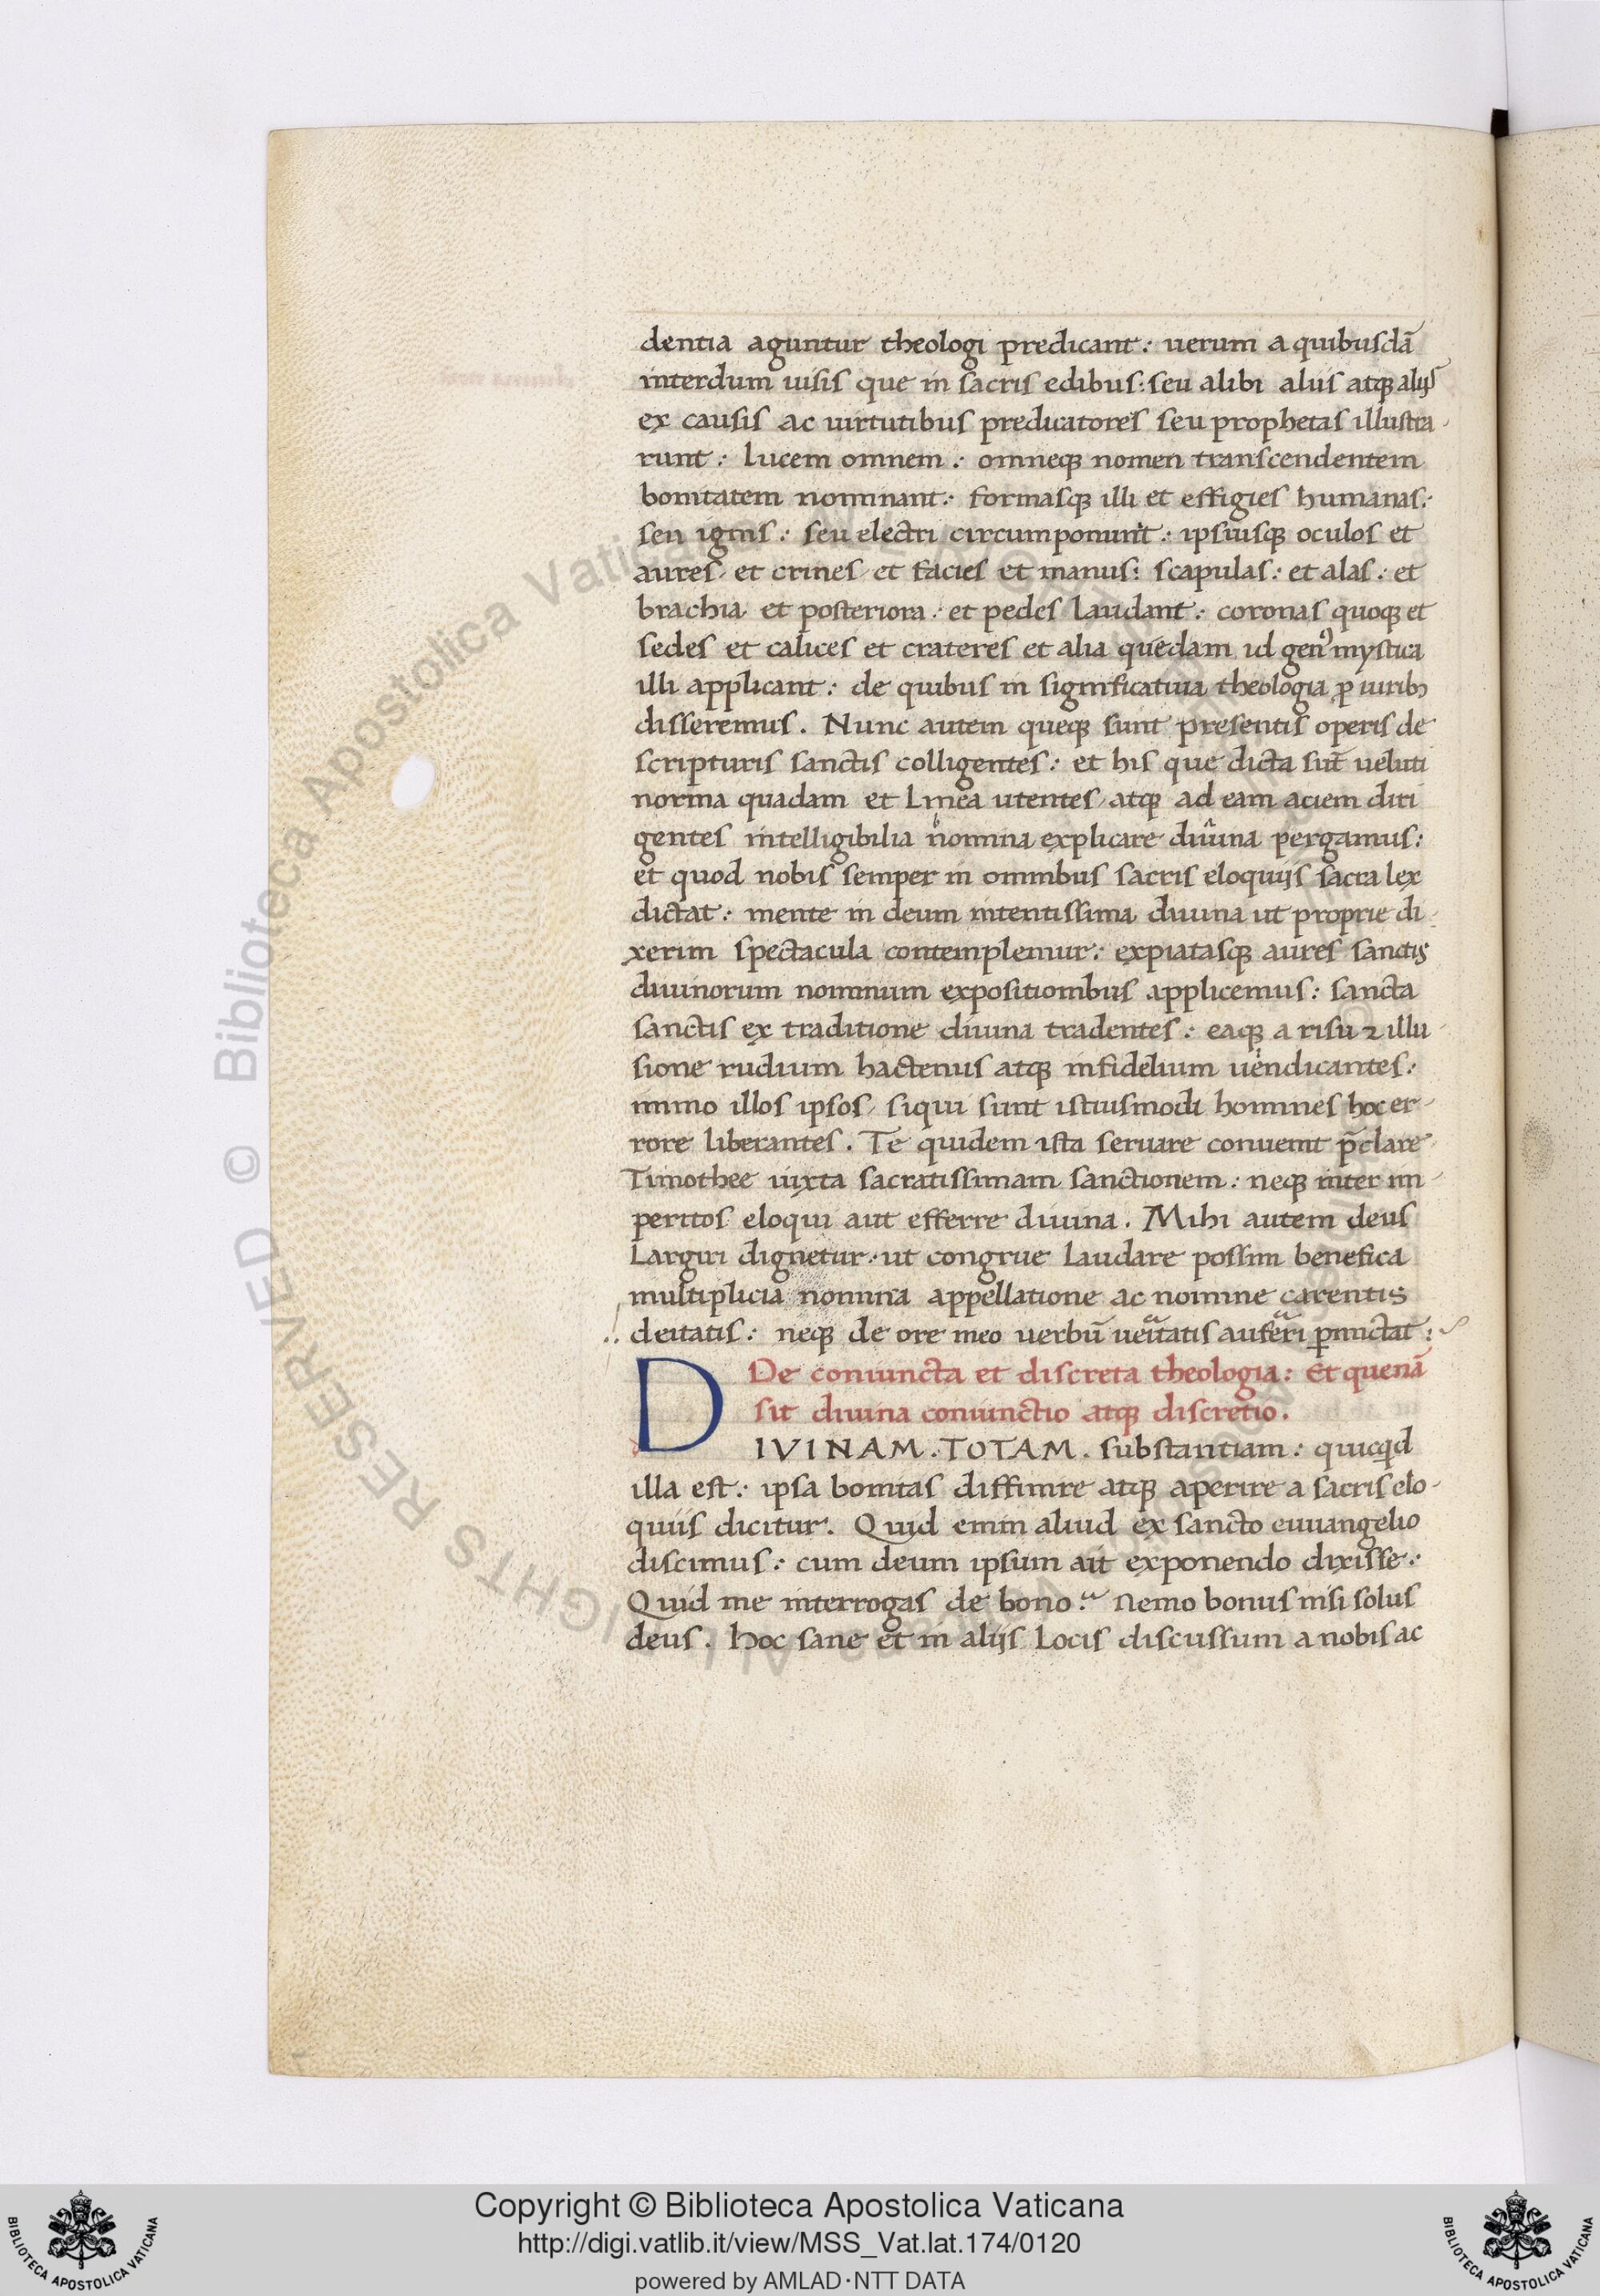 dentia aguntur theologi predicant: uerum a quibusdā
interdum uisis que in sacris edibus: seu alibi aliis atqꝫ alijs
ex causis ac uirtutibus predicatores seu prophetas illustra-
runt: lucem omnem: omneqꝫ nomen transcendentem
bonitatem nominant: formasqꝫ illi et effigies humanas:
seu ignis: seu electri circumponunt: ipsiusqꝫ oculos et
aures, et crines, et facies et manus: scapulas: et alas: et
brachia, et posteriora: et pedes laudant: coronas quoqꝫ et
sedes et calices et crateres et alia quedam id genꝰ mystica
illi applicant: de quibus in significatiua theologia ꝓ uiribꝫ
disseremus. Nunc autem queqꝫ sunt presentis operis de
scripturis sanctis colligentes: et his que dicta sūt ueluti
norma quadam et linea utentes, atqꝫ ad eam aciem diri
gentes intelligibilia nomina explicare diuina pergamus:
et quod nobis semper in omnibus sacris eloquijs sacra lex
dictat: mente in deum intentissima diuina ut proprie di-
xerim spectacula contemplemur: expiatasqꝫ aures sanctis
diuinorum nominum expositionibus applicemus: sancta
sanctis ex traditione diuina tradentes: eaqꝫ a risu ⁊ illu-
sione rudium hactenus atqꝫ infidelium uendicantes:
immo illos ipsos, siqui sunt istiusmodi homines hoc er-
rore liberantes. Te quidem ista seruare conuenit p̄clare
Timothee iuxta sacratissimam sanctionem: neqꝫ inter im-
peritos eloqui aut efferre diuina. Mihi autem deus
largiri dignetur: ut congrue laudare possim benefica
multiplicia nomina appellatione ac nomine carentis
deitatis: neqꝫ de ore meo uerbū ueritatis auferri ꝑmictat:
De coniuncta et discreta theologia: Et quenā
sit diuina coniunctio atqꝫ discretio.
DIVINAM. TOTAM. substantiam: quicqd
illa est: ipsa bonitas diffinire atqꝫ aperire a sacris elo-
quiis dicitur. Quid enim aliud ex sancto euuangelio
discimus: cum deum ipsum ait exponendo dixisse:
Quid me interrogas de bono? Nemo bonus nisi solus
deus. Hoc sane et in alijs locis discussum a nobis ac
© Biblioteca Apostolica Vaticana ALL RIGHTS RESERVED
Copyright © Biblioteca Apostolica Vaticana
http://digi.vatlib.it/view/MSS_Vat.lat.174/0120
powered by AMLAD·NTT DATA
BIBLIOTECA APOSTOLICA VATICANA
BIBLIOTECA APOSTOLICA VATICANA